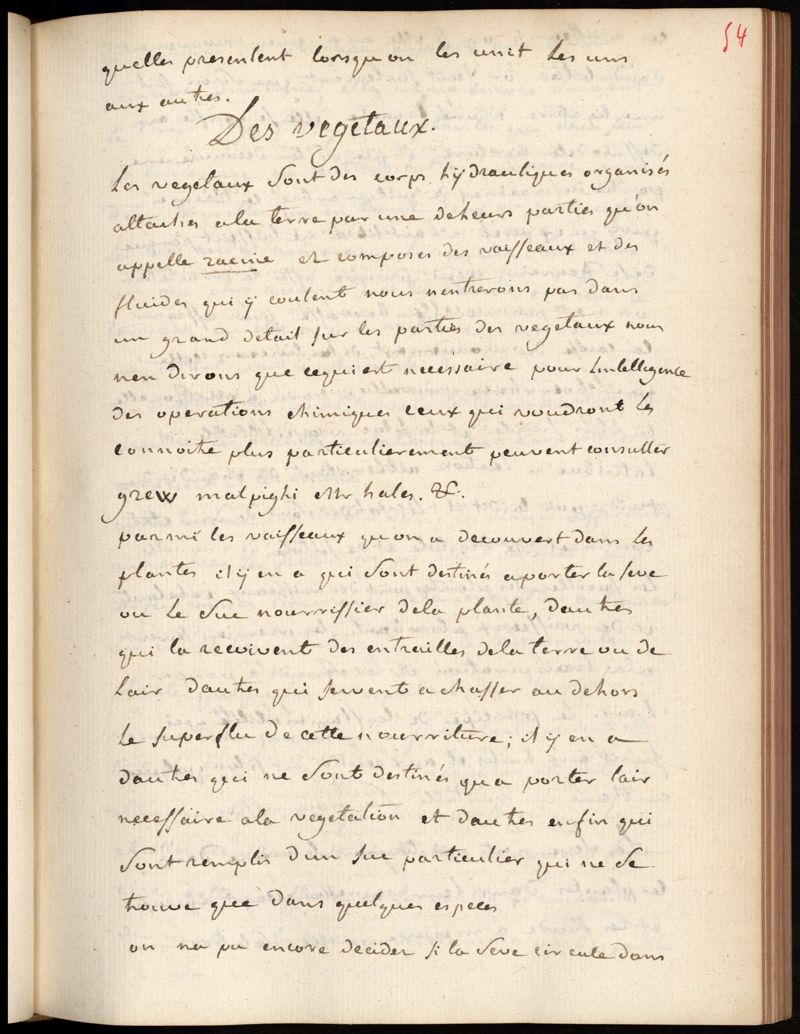 54
quelles presentent lorsquon les unit les uns
aux autres.
Des vegetaux.
Les vegetaux sont des corps hydrauliques organisés
attachés a la terre par une de leurs parties qu'on
appelle racine et composes des vaisseaux et des
fluides qui y coulent nous nentrerons pas dans
un grand detail sur les parties des vegetaux nous
nen dirons que cequi est necessaire pour lintelligence
des operations chimiques ceux qui voudront les
connoitre plus particulierement peuvent consulter
grew malpighi et Mr hales. &c.
parmi les vaisseaux quon a decouvert dans les
plantes il y en a qui sont destinés a porter la seve
ou le suc nourrissier dela plante, dautres
qui la recoivent des entrailles dela terre ou de
lair dautres qui servent a chasser au dehors
le superflu de cette nourriture; il y en a
dautres qui ne sont destinés qua porter lair
necessaire ala vegetation et dautres enfin qui
sont remplis dun suc particulier qui ne se
trouve que dans quelques especes
on na pu encore decider si la seve circule dans